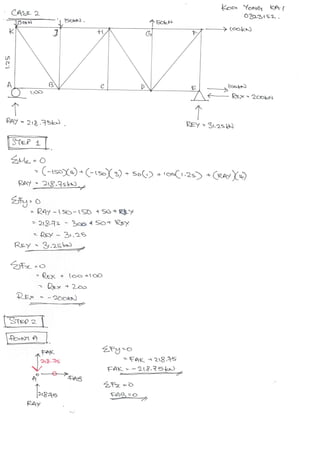 CASE 2
KOH YONG KAI
0323152.
150kN 150kN. 50kN
K J H G F → 100kN
1.25
A B C D E → 100kN
1.00
REX = 200kN
RAY = 218.75kN. REY = 31.25kN
STEP 1
ΣME = 0
= (-150)(4) + (-150)(3) + 50(1) + 100(1.25) + (RAY)(4)
RAY = 218.75kN
ΣFy = 0
= RAY - 150 - 150 + 50 + REY
= 218.75 - 300 + 50 + REY
= REY - 31.25
REY = 31.25kN
ΣFx = 0
= REX + 100 + 100
= REX + 200
REX = -200kN
STEP 2
POINT A
FAK
218.75
A FAB
218.75
RAY
ΣFy = 0
= FAK + 218.75
FAK = -218.75kN
ΣFx = 0
FAB = 0